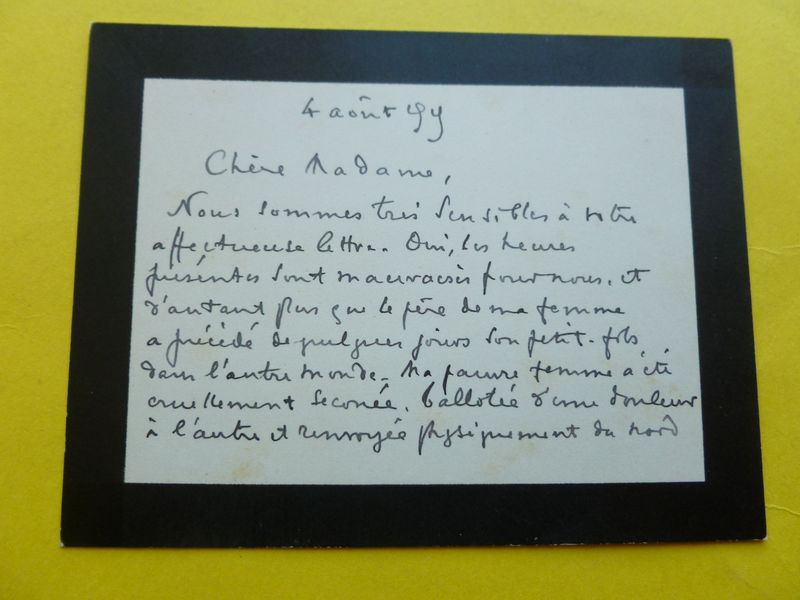 4 août
Chère Madame,
Nous sommes très sensibles à votre
affectueuse lettre. Oui, les heures
présentes sont mauvaises pour nous, et
d'autant plus que le père de ma femme
a précédé de quelques jours son petit-fils
dans l'autre monde. Ma pauvre femme a été
cruellement secouée, ballotée d'une douleur
à l'autre et renvoyée physiquement du nord